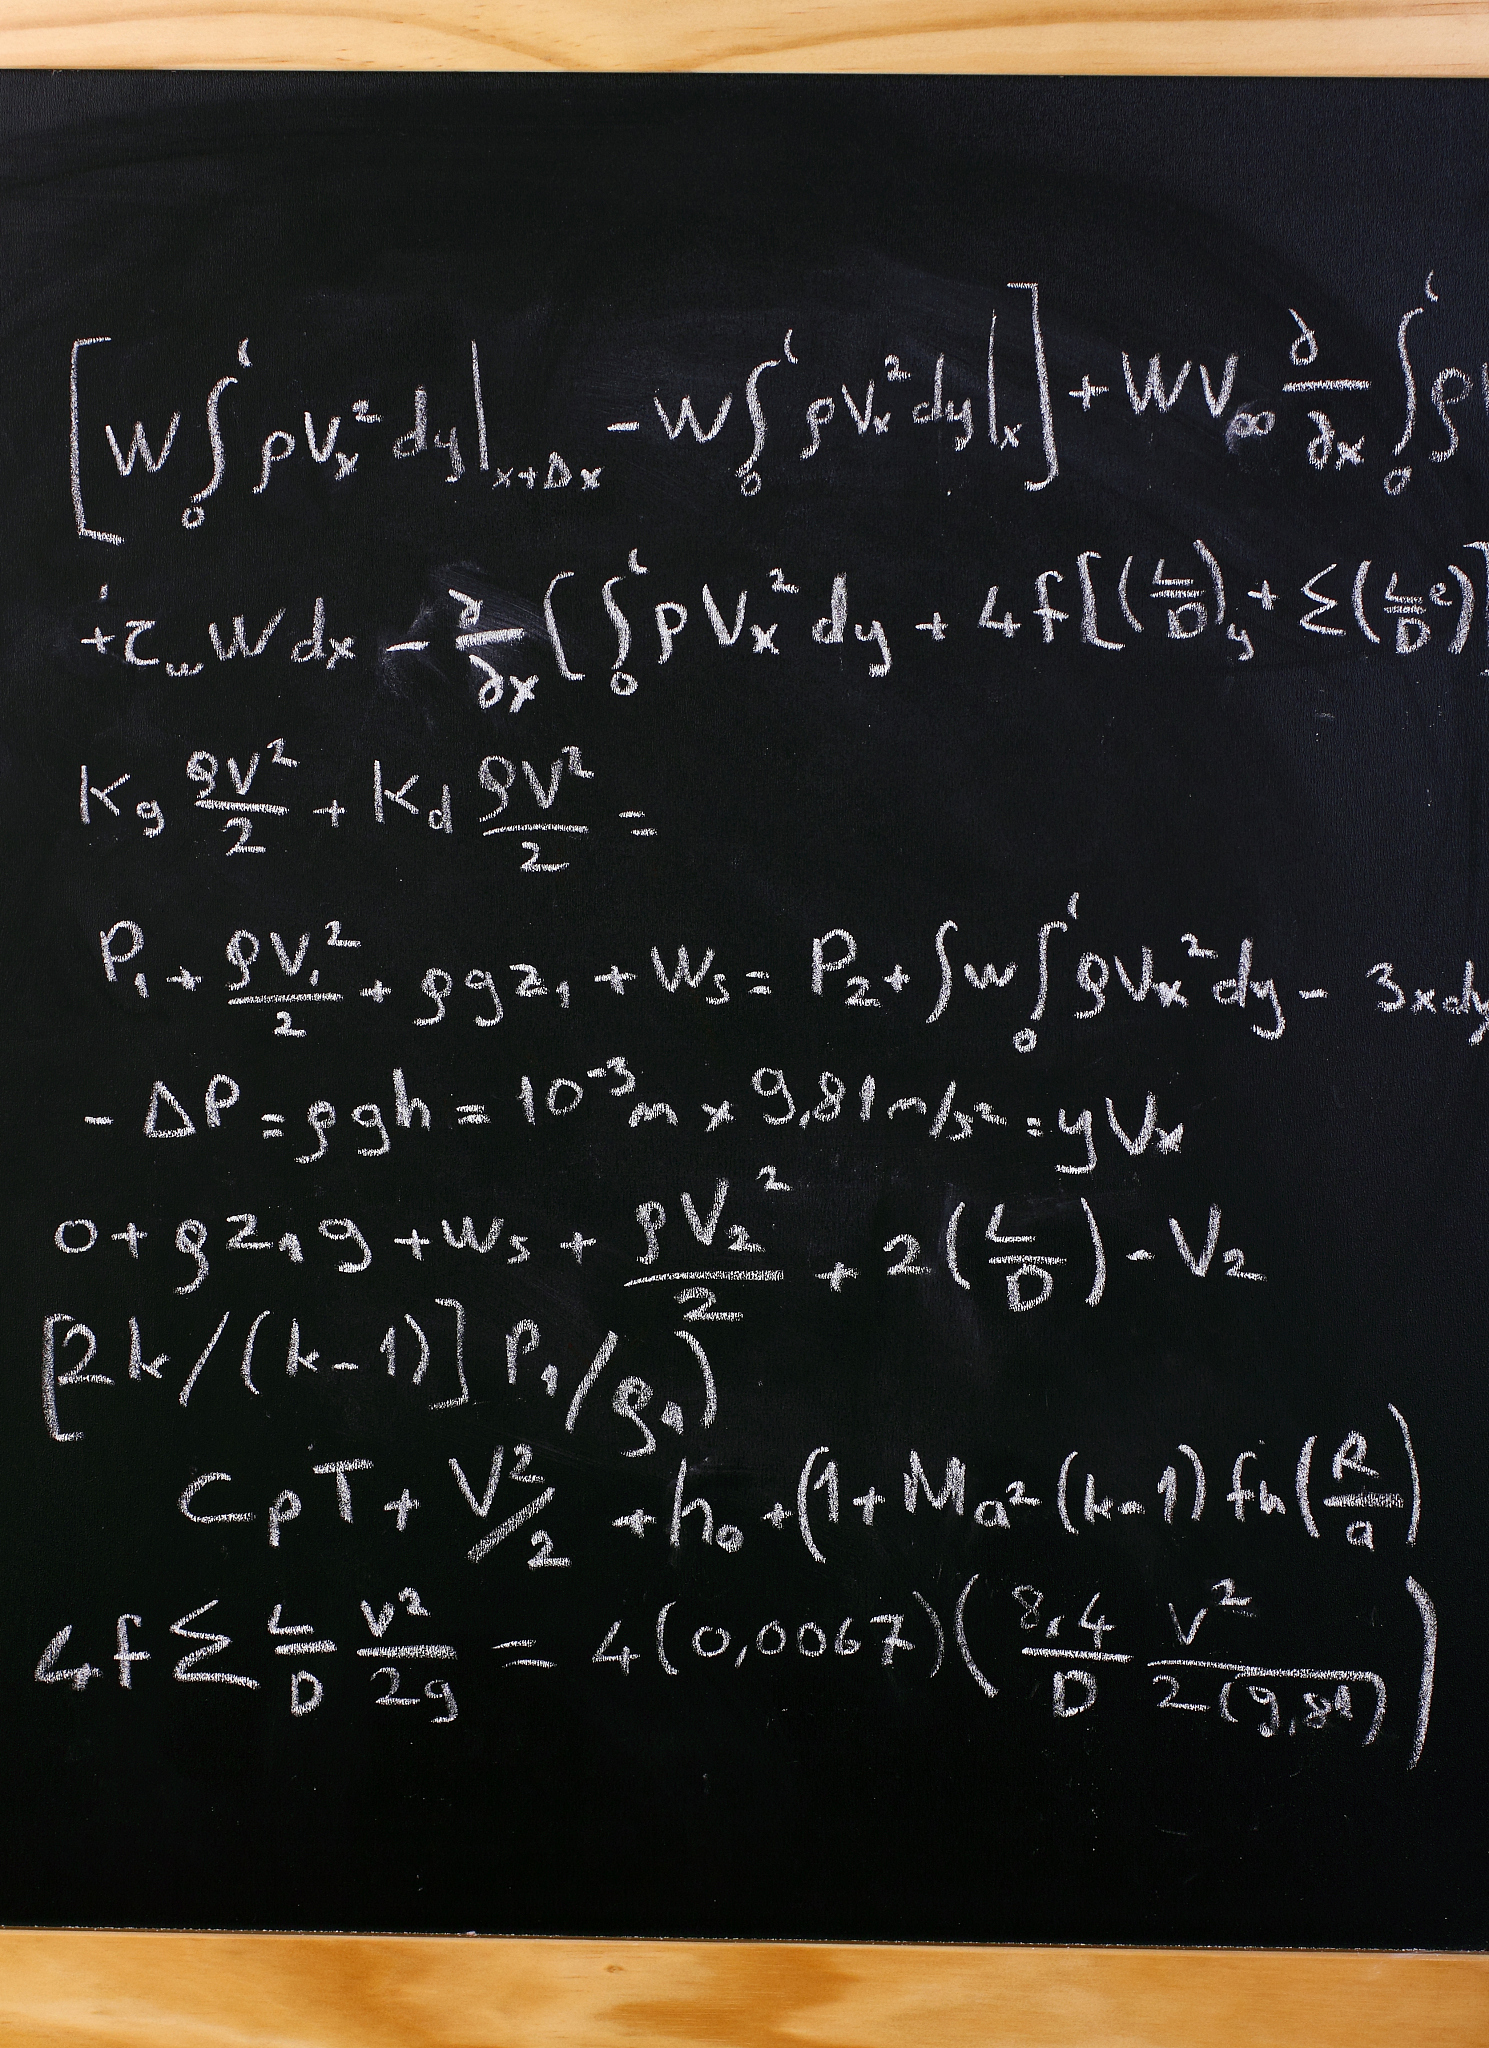 [W∫₀ᶥ ρVₓ² dy|ₓ₊Δₓ - W∫₀ᶥ ρVₓ² dy|ₓ] + WV∞ ∂/∂x ∫₀ᶥ ρ
+τ_w W dx - ∂/∂x [∫₀ᶥ ρVₓ² dy + 4f[(L/D)_y + Σ(Le/D)]
K_g ρV²/2 + K_d ρV²/2 =
P₁ + ρV₁²/2 + ρgz₁ + W_s = P₂ + ∫w∫₀ᶥ ρVₓ² dy - 3xdy
-ΔP = ρgh = 10⁻³m x 9,81m/s² = yVₓ
0 + ρz₁g + W_s + ρV₂²/2 + 2(L/D) - V₂
[2k/(k-1)] P₁/ρ₁)
CpT + V²/2 + h₀ + (1 + Ma²(k-1) fn(R/a)
4f Σ L/D V²/2g = 4(0,0067)(8,4/D V²/2(9,81))